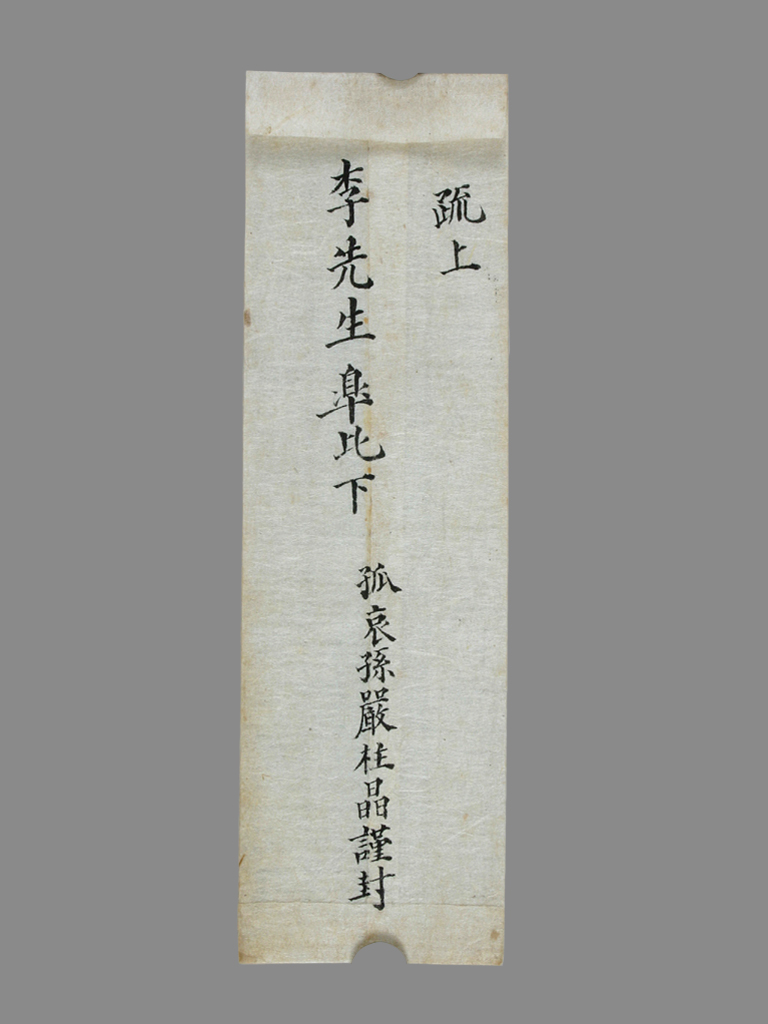 疏上
李先生 臯比下
孤哀孫嚴柱晶謹封